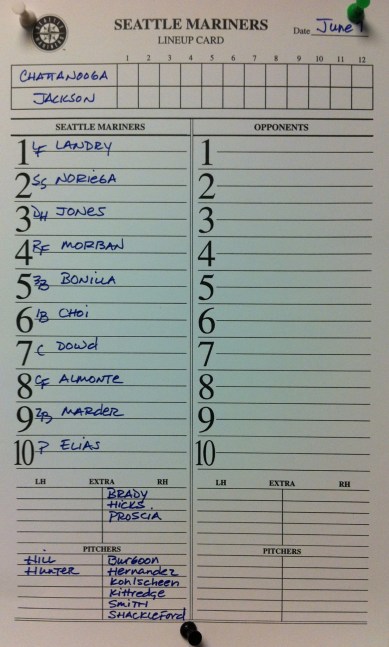 SEATTLE MARINERS
LINEUP CARD
Date June 1
1 2 3 4 5 6 7 8 9 10 11 12
CHATTANOOGA
JACKSON
SEATTLE MARINERS OPPONENTS
1 LF LANDRY 1
2 SS NORIEGA 2
3 DH JONES 3
4 RF MORBAN 4
5 3B BONILLA 5
6 1B CHOI 6
7 C DOWD 7
8 CF ALMONTE 8
9 2B MARDER 9
10 P ELIAS 10
LH EXTRA RH LH EXTRA RH
BRADY
HICKS
PROSCIA
PITCHERS PITCHERS
HILL Burgoon
HUNTER Hernandez
Kohlscheen
Kittredge
SMITH
SHACKLEFORD